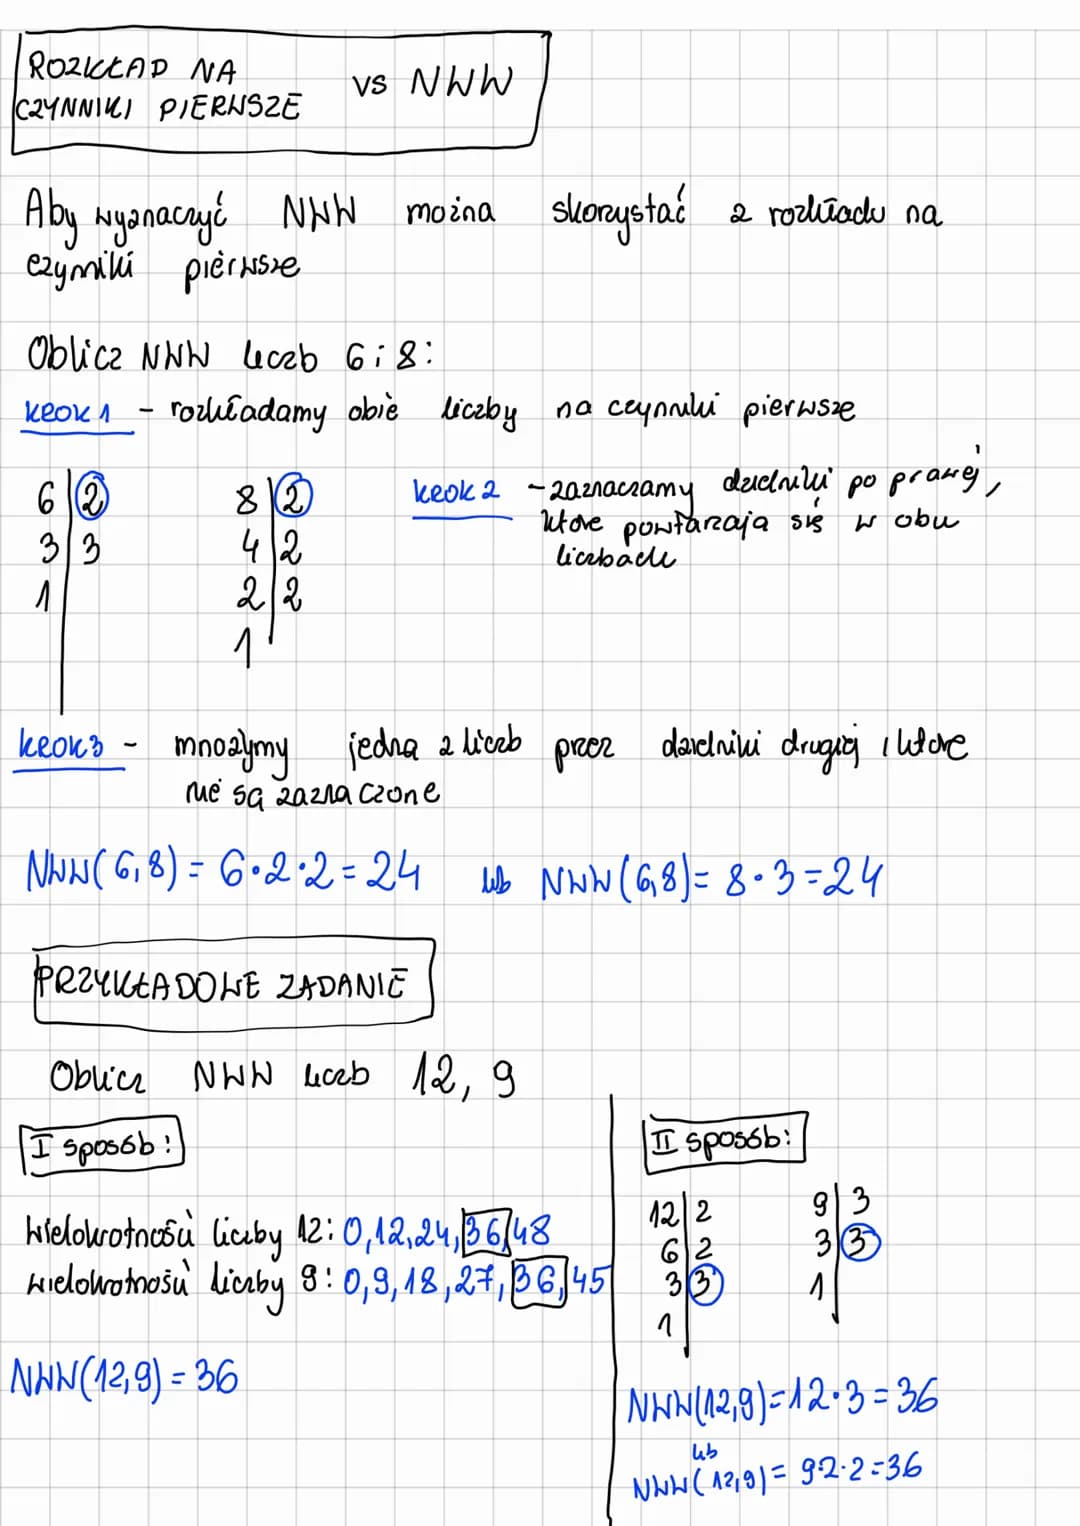 ROZKŁAD NA
CZYNNIKI PIERWSZE
vs NWW
Aby wyznaczyć NWW można skorzystać z rozkładu na
czynniki pierwsze
Oblicz NWW liczb 6 i 8:
KROK 1 - rozkładamy obie liczby na czynniki pierwsze
6 | 2
3 | 3
1
8 | 2
4 | 2
2 | 2
1
KROK 2 - zaznaczamy dzielniki po prawej,
które powtarzają się w obu
liczbach
KROK 3 - mnożymy jedną z liczb przez dzielniki drugiej, które
nie są zaznaczone
NWW(6,8) = 6·2·2 = 24 lub NWW(6,8) = 8·3 = 24
PRZYKŁADOWE ZADANIE
Oblicz NWW liczb 12, 9
I sposób:
Wielokrotności liczby 12: 0,12,24,36,48
wielokrotności liczby 9: 0,9,18,27,36,45
NWW(12,9) = 36
II sposób:
12 | 2
6 | 2
3 | 3
1
9 | 3
3 | 3
1
NWW(12,9) = 12·3 = 36
lub
NWW(12,9) = 92·2 = 36